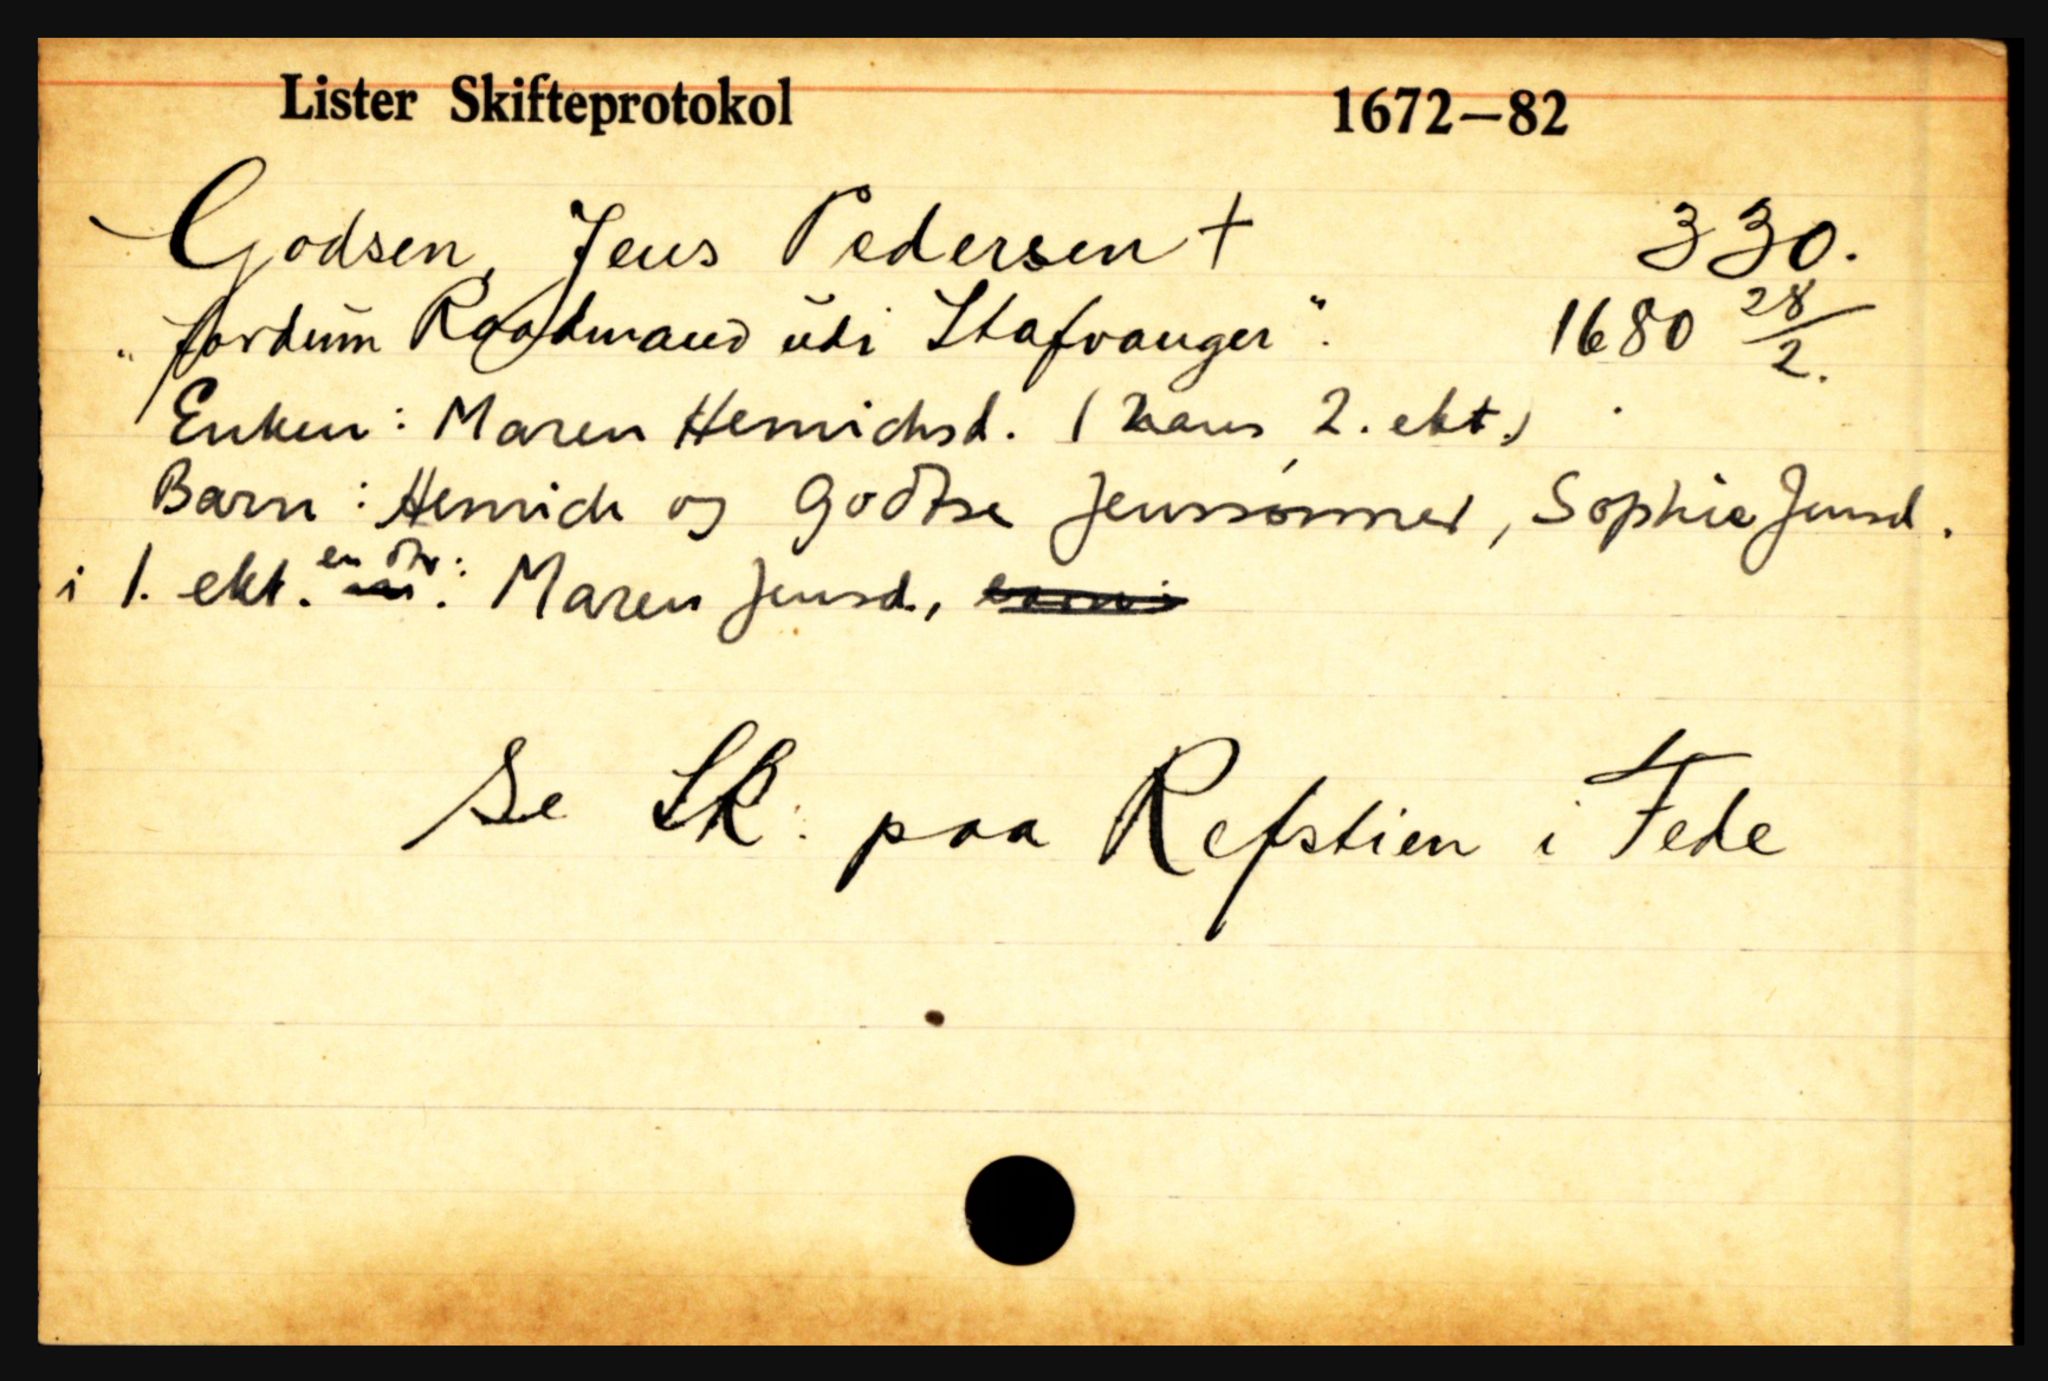 Lister Skifteprotokol 1672—82
Godsen, Jens Pedersen † 330.
"fordūm Raadmand ūdi Stafvanger". 1680 28/2.
Enken: Maren Henrichsd. (hans 2. ekt.)
Barn: Henrich og Godtse Jenssønner, Sophie Jensd.
i 1. ekt. en dtr: Maren Jensd.,
Se SK: paa Refstien i Fede